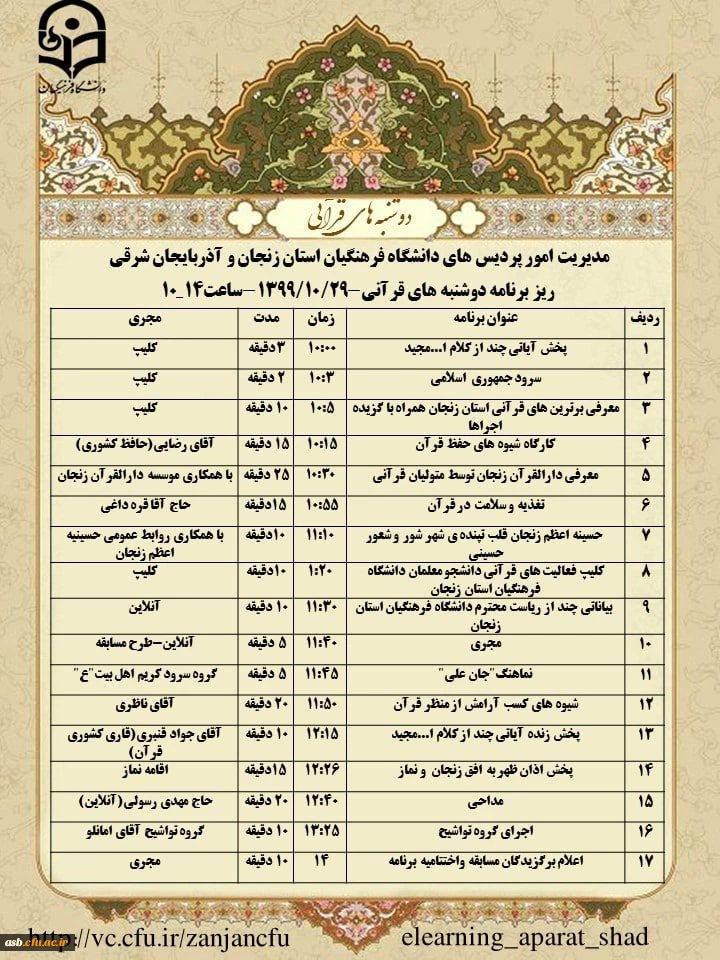 دانشگاه فرهنگیان
دوشنبه های قرآنی
مدیریت امور پردیس های دانشگاه فرهنگیان استان زنجان و آذربایجان شرقی
ریز برنامه دوشنبه های قرآنی-۱۳۹۹/۱۰/۲۹-ساعت۱۴_۱۰
ردیف عنوان برنامه زمان مدت مجری
۱ پخش آیاتی چند از کلام ا...مجید ۱۰:۰۰ ۳دقیقه کلیپ
۲ سرود جمهوری اسلامی ۱۰:۳ ۲ دقیقه کلیپ
۳ معرفی برترین های قرآنی استان زنجان همراه با گزیده ۱۰:۵ ۱۰ دقیقه کلیپ
اجراها
۴ کارگاه شیوه های حفظ قرآن ۱۰:۱۵ ۱۵ دقیقه آقای رضایی(حافظ کشوری)
۵ معرفی دارالقرآن زنجان توسط متولیان قرآنی ۱۰:۳۰ ۲۵ دقیقه با همکاری موسسه دارالقرآن زنجان
۶ تغذیه و سلامت در قرآن ۱۰:۵۵ ۱۵دقیقه حاج آقا قره داغی
۷ حسینه اعظم زنجان قلب تپنده ی شهر شور و شعور ۱۱:۱۰ ۱۰دقیقه با همکاری روابط عمومی حسینیه
حسینی اعظم زنجان
۸ کلیپ فعالیت های قرآنی دانشجو معلمان دانشگاه ۱:۲۰ ۱۰دقیقه کلیپ
فرهنگیان استان زنجان
۹ بیاناتی چند از ریاست محترم دانشگاه فرهنگیان استان ۱۱:۳۰ ۱۰ دقیقه آنلاین
زنجان
۱۰ مجری ۱۱:۴۰ ۵ دقیقه آنلاین-طرح مسابقه
۱۱ نماهنگ"جان علی" ۱۱:۴۵ ۵ دقیقه گروه سرود کریم اهل بیت"ع"
۱۲ شیوه های کسب آرامش از منظر قرآن ۱۱:۵۰ ۲۰ دقیقه آقای ناظری
۱۳ پخش زنده آیاتی چند از کلام ا...مجید ۱۲:۱۵ ۱۰ دقیقه آقای جواد قنبری(قاری کشوری
قرآن)
۱۴ پخش اذان ظهر به افق زنجان و نماز ۱۲:۲۶ ۱۵دقیقه اقامه نماز
۱۵ مداحی ۱۲:۴۰ ۲۰ دقیقه حاج مهدی رسولی(آنلاین)
۱۶ اجرای گروه تواشیح ۱۳:۲۵ ۱۰ دقیقه گروه تواشیح آقای امانلو
۱۷ اعلام برگزیدگان مسابقه واختتامیه برنامه ۱۴ ۱۰ دقیقه مجری
http://vc.cfu.ir/zanjancfu elearning_aparat_shad
asb.cfu.ac.ir